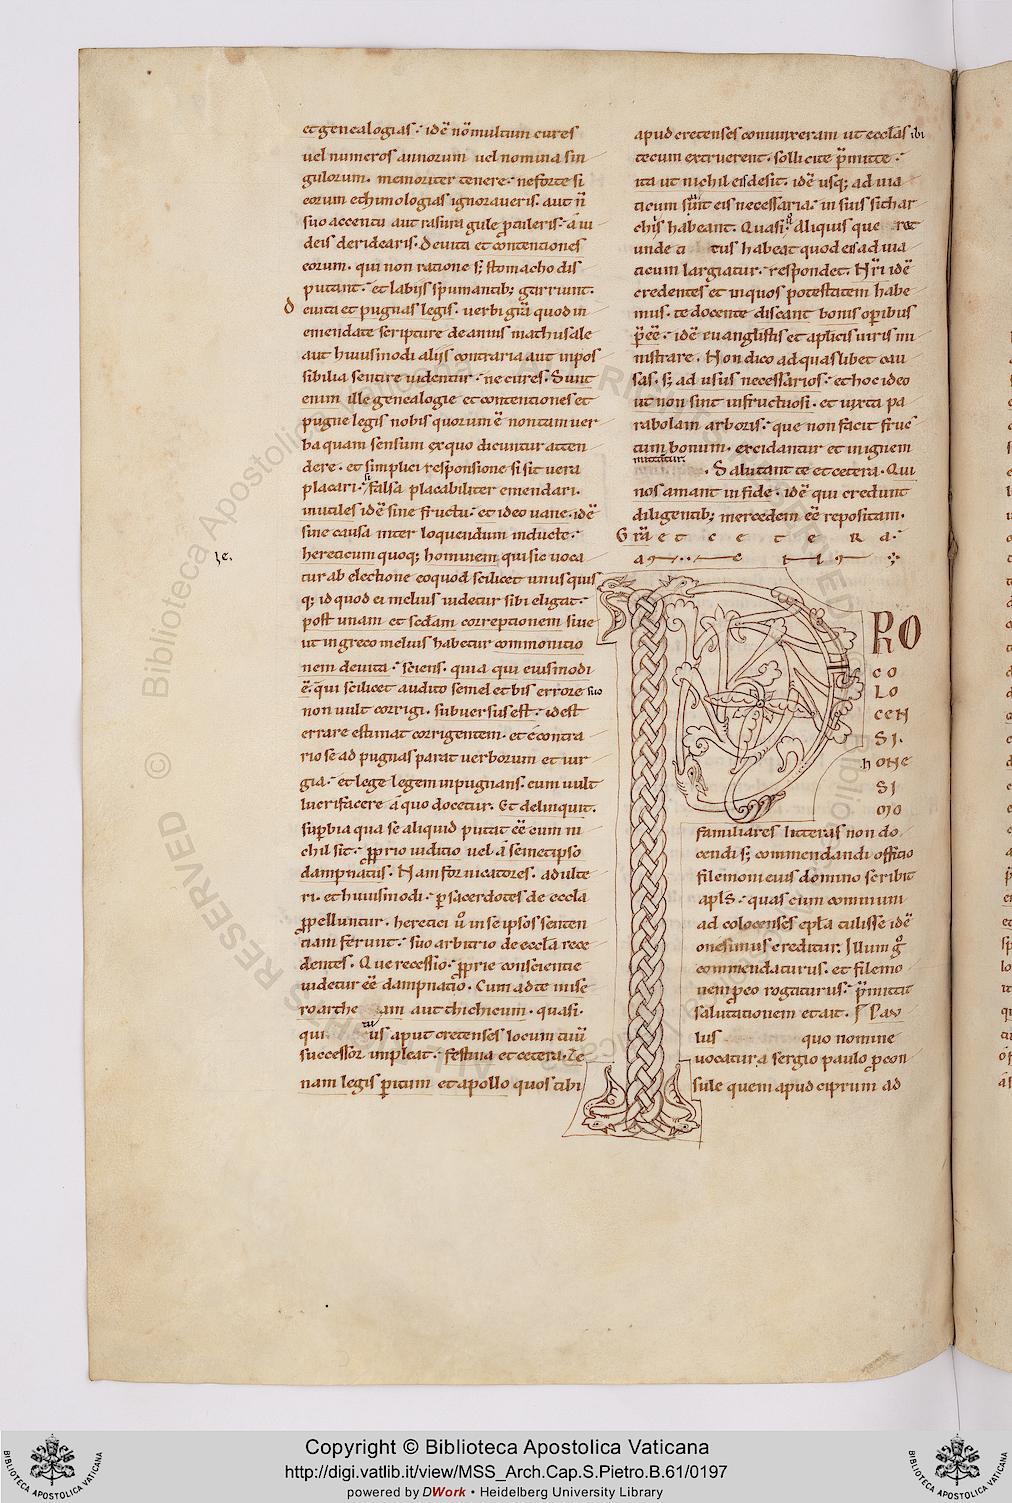 et genealogias. idē nō multum cures
uel numeros annorum uel nomina sin
gulorum. memoriter tenere. ne forte si
eorum ethimologias ignoraueris. aut ñ
suo accentu aut rasura gule ꝓtuleris. a iu
deis deridearis. Deuita et contentiones
eorum. qui non ratione sꝫ stomacho dis
putant. et labijs spumantibꝫ garriunt.
Deuita et pugnas legis. uerbi grā quod in
emendate scripture de annis mathusale
aut huiusmodi alijs contraria aut inpos
sibilia sentire uidentur. ne cures. Sunt
enim ille genealogie et contentiones et
pugne legis nobis quorum ē non tam uer
ba quam sensum ex quo dicuntur atten
dere. et simplici responsione si sit uera
placari. si falsa placabiliter emendari.
inutiles idē sine fructu. et ideo uane. idē
sine causa inter loquendum inducte.
hereticum quoqꝫ hominem qui sic uoca
tur ab electione eo quod scilicet unusquis
qꝫ id quod ei melius uidetur sibi eligat.
post unam et sedam correptionem siue
ut in greco melius habetur commonitio
nem deuita. sciens. quia qui eiusmodi
ē. qui scilicet audito semel et bis errore suo
non uult corrigi. subuersus est. id est
errare estimat corrigentem. et econtra
rio se ad pugnas parat uerborum et iur
gia. et lege legem inpugnans. eum uult
lucrifacere a quo docetur. Et delinquit.
suꝑbia qua se aliquid putat eē cum ni
chil sit. ꝓprio iuditio uel a semetipso
dampnatus. Nam fornicatores. adulte
ri. et huiusmodi. ꝑ sacerdotes de eccla
ꝓpelluntur. heretici ū in se ipsos senten
tiam ferunt. suo arbitrio de eccla rece
dentes. Que recessio. ꝓprie conscientie
uidetur eē dampnatio. Cum ad te mise
ro arthe am aut thichicum. quasi.
qui tuus aput cretenses locum tuū
successor impleat. festina et cetera. Ze
nam legis ꝑitum et apollo quos tibi
apud cretenses coniunxeram ut ecclas ibi
tecum extruerent. sollicite p̄mitte.
ita ut nichil eis desit. idē usqꝫ ad uia
ticum sunt eis necessaria. in suis sichar
chijs habeant. Quasi. Aliquis que
unde tus habeat quod eis ad uia
ticum largiatur. respondet. Nr̄i idē
credentes et in quos potestatem habe
mus. te docente discant bonis oꝑibus
p̄eē. idē euanglistis et aplicis uiris mi
nistrare. Non dico ad quaslibet cau
sas. sꝫ ad usus necessarios. et hoc ideo
ut non sint infructuosi. et iuxta pa
rabolam arboris. que non facit fruc
tum bonum. excidantur et in ignem
mittatur. Salutant te et cetera. Qui
nos amant in fide. idē qui credunt
diligentibꝫ mercedem eē repositam.
Grā et cetera.
PRO
CO
LO
CEN
SI.
hONE
SI
MO
familiares litteras non do
cendi sꝫ commendandi officio
filemoni eius domino scribit
apls. quas eum communi
ad colocenses epła tulisse idē
onesimus creditur. Illum g
commendaturus. et filemo
nem ꝓ eo rogaturus. p̄mittit
salutationem et ait. Pau
lus quo nomine
uocatura sergio paulo ꝓcon
sule quem apud ciprum ad
Copyright © Biblioteca Apostolica Vaticana
http://digi.vatlib.it/view/MSS_Arch.Cap.S.Pietro.B.61/0197
powered by DWork • Heidelberg University Library